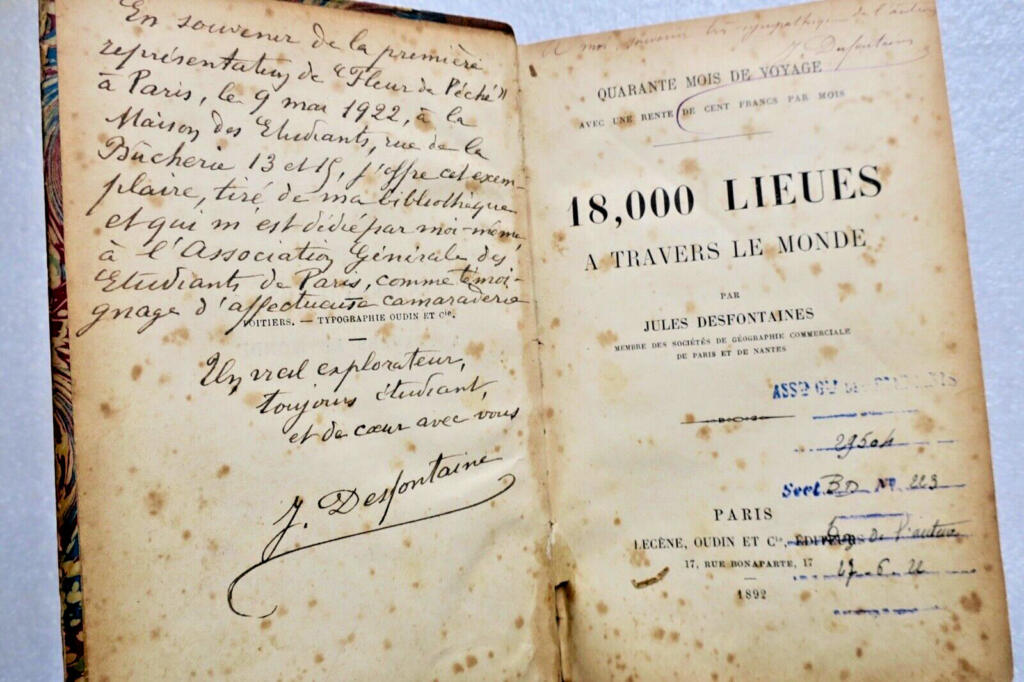 En souvenir de la première
représentation de "Fleur de Péché"
à Paris, le 9 mai 1922, à la
Maison des Etudiants, rue de la
Bûcherie 13 et 15, j'offre cet exem-
plaire, tiré de ma bibliothèque
et qui m'est dédié par moi-même,
à l'Association Générale des
Etudiants de Paris, comme témoi-
gnage d'affectueuse camaraderie
POITIERS. — TYPOGRAPHIE OUDIN ET Cie.
Un vrai explorateur,
toujours étudiant,
et de cœur avec vous
J. Desfontaine
A mon souvenir très sympathique de l'auteur
J. Desfontaines
QUARANTE MOIS DE VOYAGE
AVEC UNE RENTE DE CENT FRANCS PAR MOIS
18,000 LIEUES
A TRAVERS LE MONDE
PAR
JULES DESFONTAINES
MEMBRE DES SOCIÉTÉS DE GÉOGRAPHIE COMMERCIALE
DE PARIS ET DE NANTES
ASSon Gle
29504
Sect. BD No 223
PARIS
LECÈNE, OUDIN ET Cie, ÉDITEURS
Don de l'auteur
17, RUE BONAPARTE, 17
27-6-22
1892